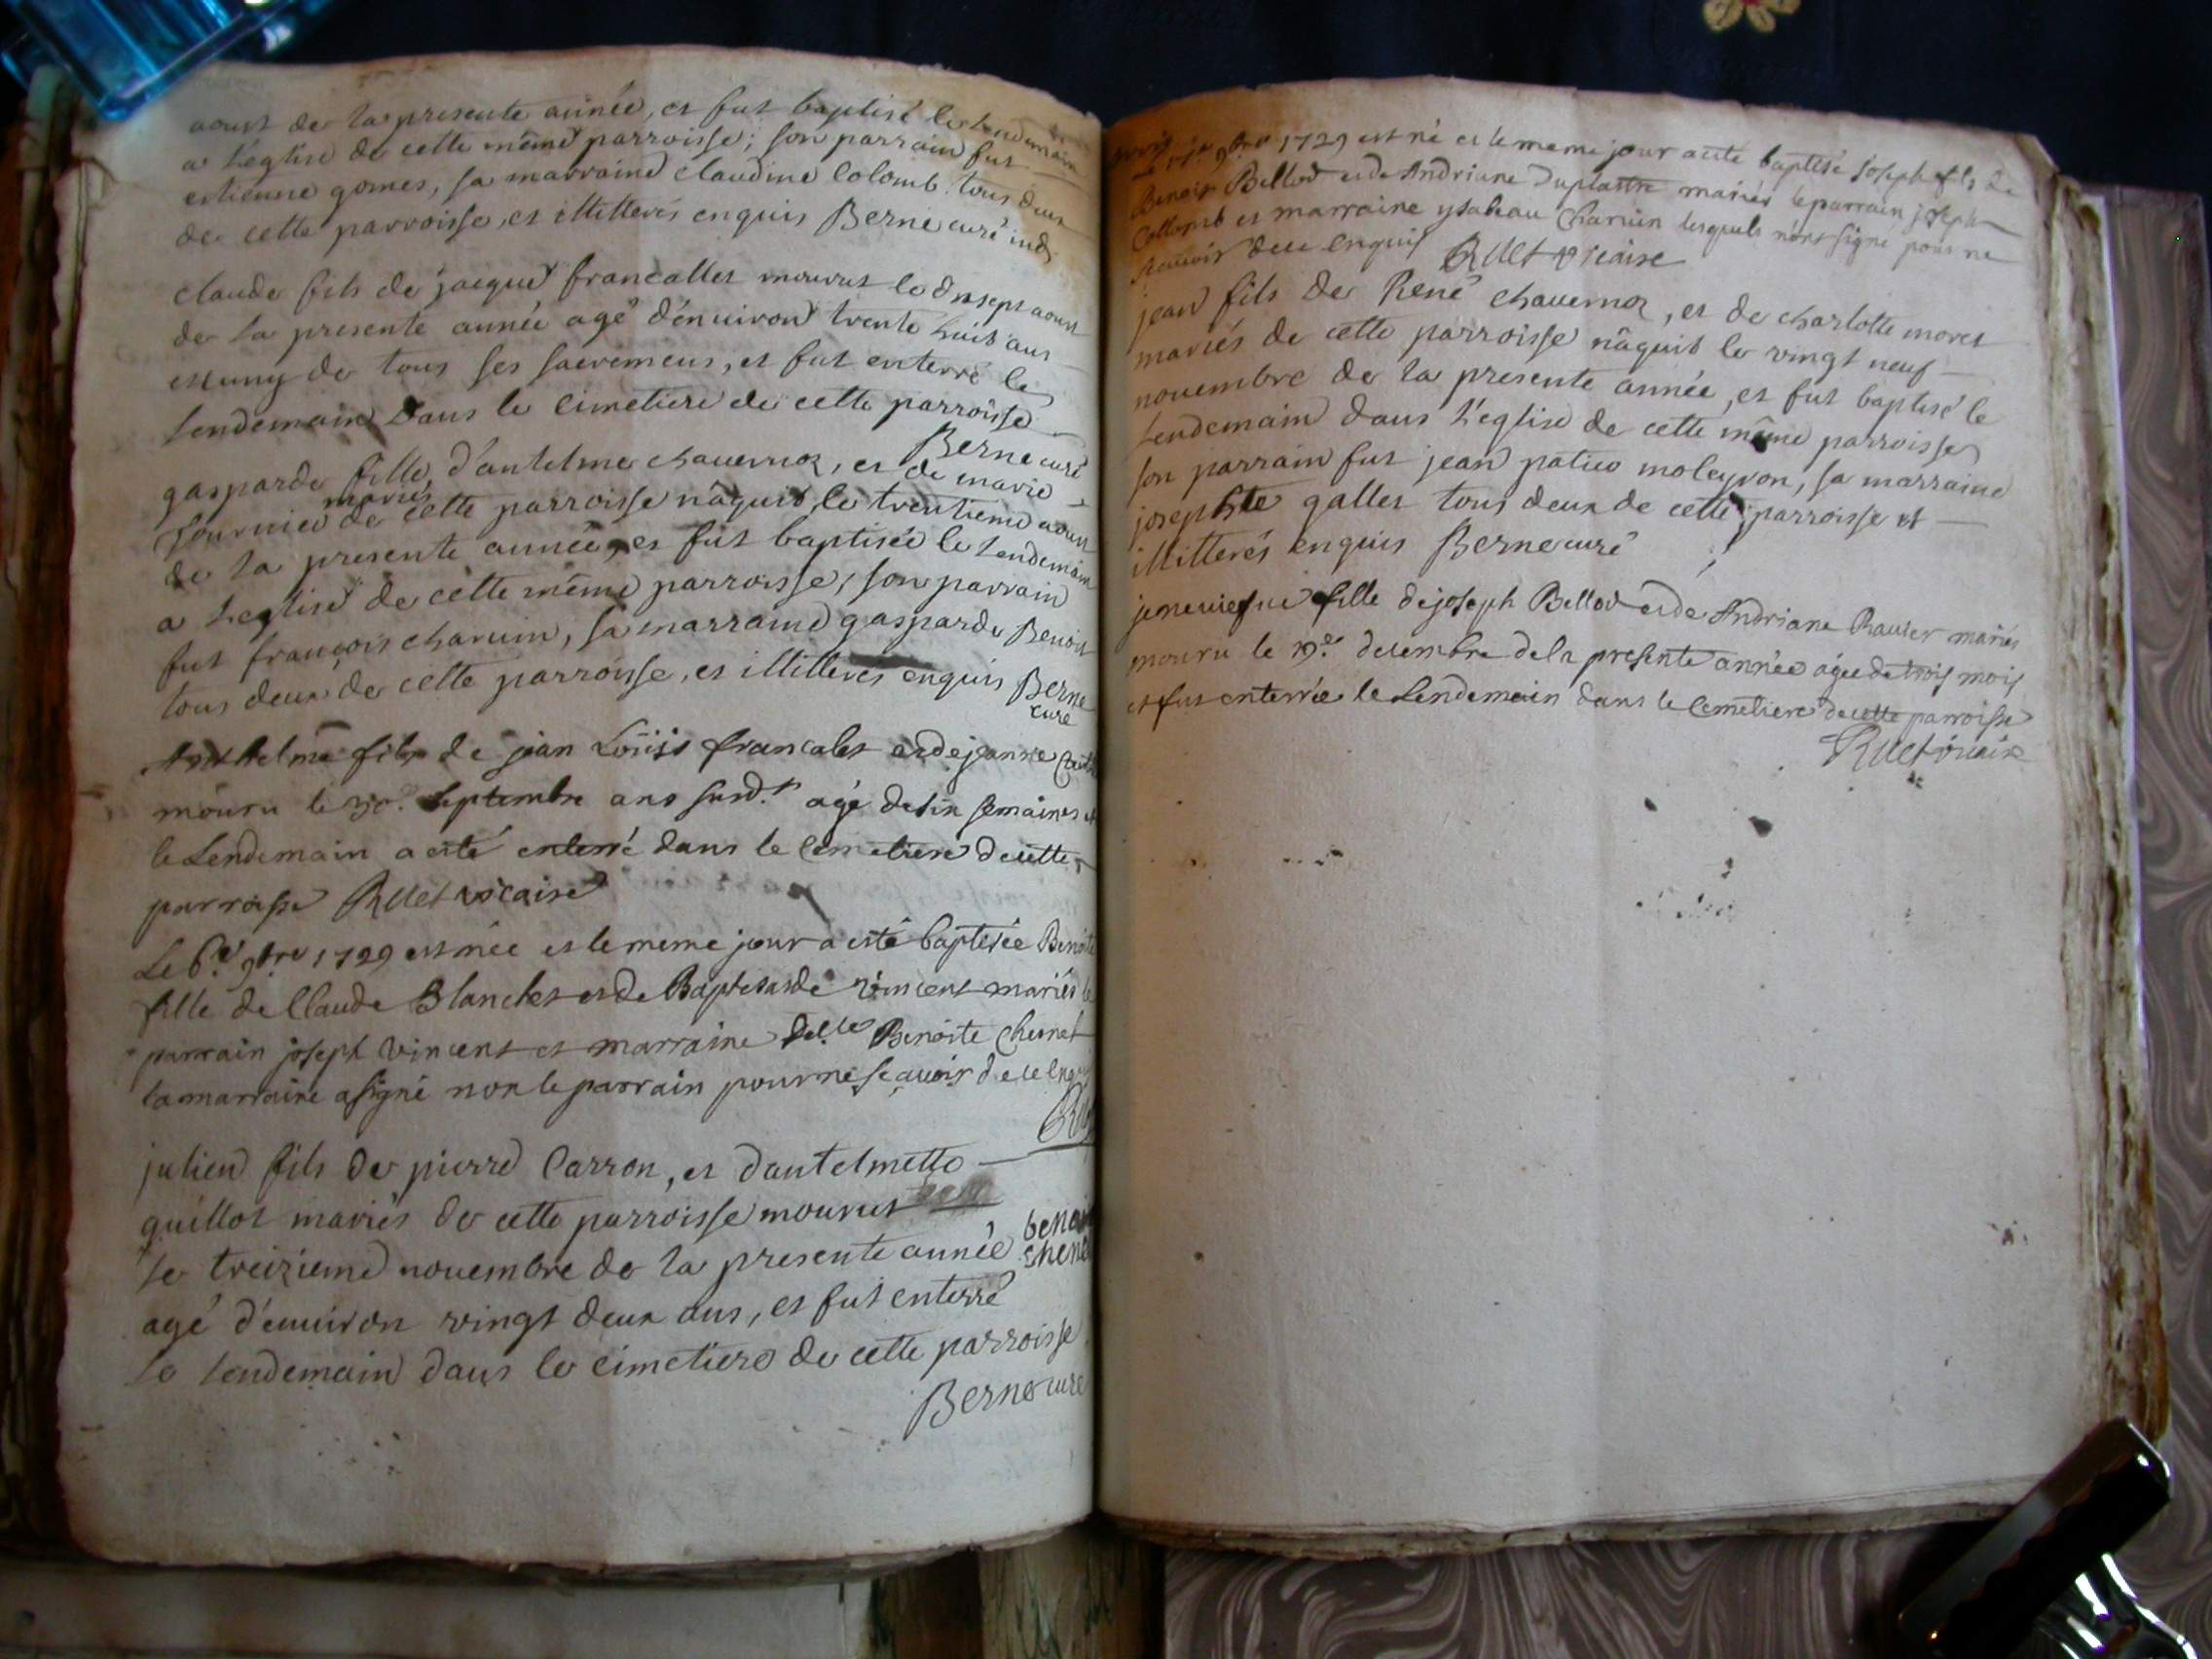 aoust de la presente année, et fut baptisé le lendemain
a l'eglise de cette même parroisse; son parrain fut
estienne gomes, sa marraine claudine Colomb tous deux
de cette parroisse, et illitterés enquis Berne curé
claude fils de jacque francallet mourut le dixsept aoust
de la presente année agé d'environ trente huit ans
et muny de tous ses sacremens, et fut enterré le
lendemain dans le cimetiere de cette parroisse
Berne curé
gasparde fille d'antelme chavernoz, et de marie
fournier mariés de cette parroisse nâquit le trentieme aoust
de la presente année, et fut baptisée le lendemain
a l'eglise de cette même parroisse, son parrain
fut françois charvin, sa marraine gasparde Benoit
tous deux de cette parroisse, et illitterés enquis Berne
curé
Anthelme fils de jean Loüis francalet et de jeanne
mouru le 30e septembre ans susd.t agé de six semaines et
le Lendemain a esté enterré dans le Cemetiere de cette
parroisse Ruet vicaire
Le 6e 9bre 1729 est née et le meme jour a esté baptisée Benoite
fille de Claude Blanchet et de Baptesarde vincent mariés le
parrain joseph Vincent et marraine delle Benoite Chenet
la marraine a signé non le parrain pour ne sçavoir de ce
julien fils de pierre Carron, et d'antelmette
guillot mariés de cette parroisse mourut
le treizieme novembre de la presente année
benoit
chene
agé d'environ vingt deux ans, et fut enterré
le lendemain dans le cimetiere de cette parroisse
Berne curé
9bre 1729 est né et le meme jour a esté baptisé joseph fils de
Benoit Bellod et de Andriane Duplastre mariés le parrain joseph
Collomb et marraine ysabeau Charvin lesquels n'ont signé pour ne
sçavoir de ce enquis Ruet vicaire
jean fils de René chavernoz, et de charlotte moret
mariés de cette parroisse nâquit le vingt neuf
novembre de la presente année, et fut baptisé le
lendemain dans l'eglise de cette même parroisse
son parrain fut jean patier moleyron, sa marraine
josephte gallet tous deux de cette parroisse et
illitterés enquis Berne curé
jeneviefve fille de joseph Bellod et de Andriane Ravier mariés
mouru le 19e decembre de la presente année agée de trois mois
et fut enterrée le Lendemain dans le Cemetiere de cette parroisse
Ruet vicaire